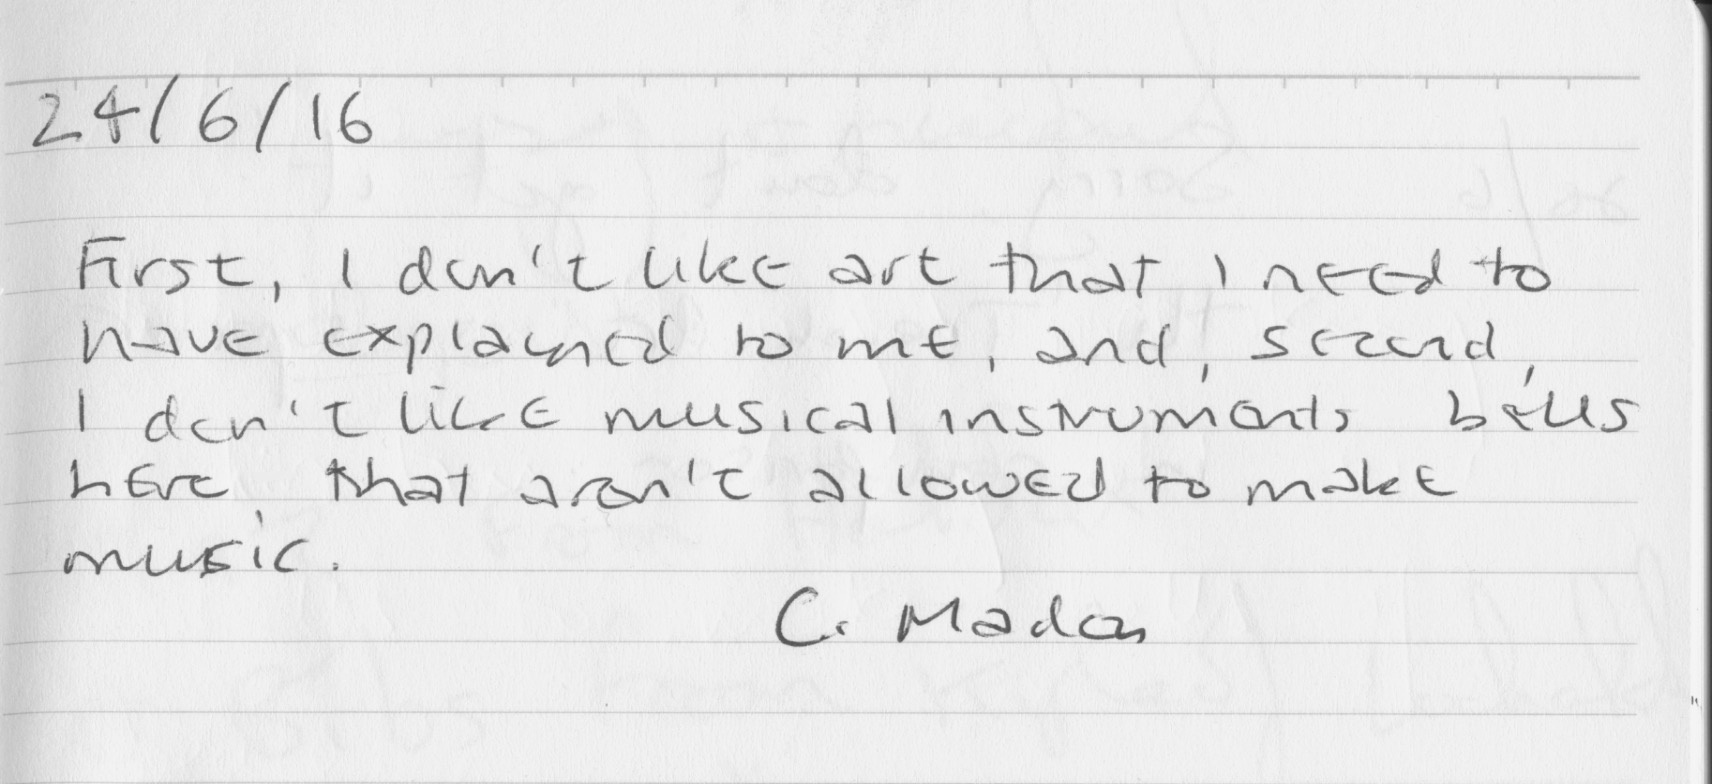 24/6/16
First, I don't like art that I need to
have explained to me, and, second,
I don't like musical instruments bells
here, that aren't allowed to make
music.
C. Madan